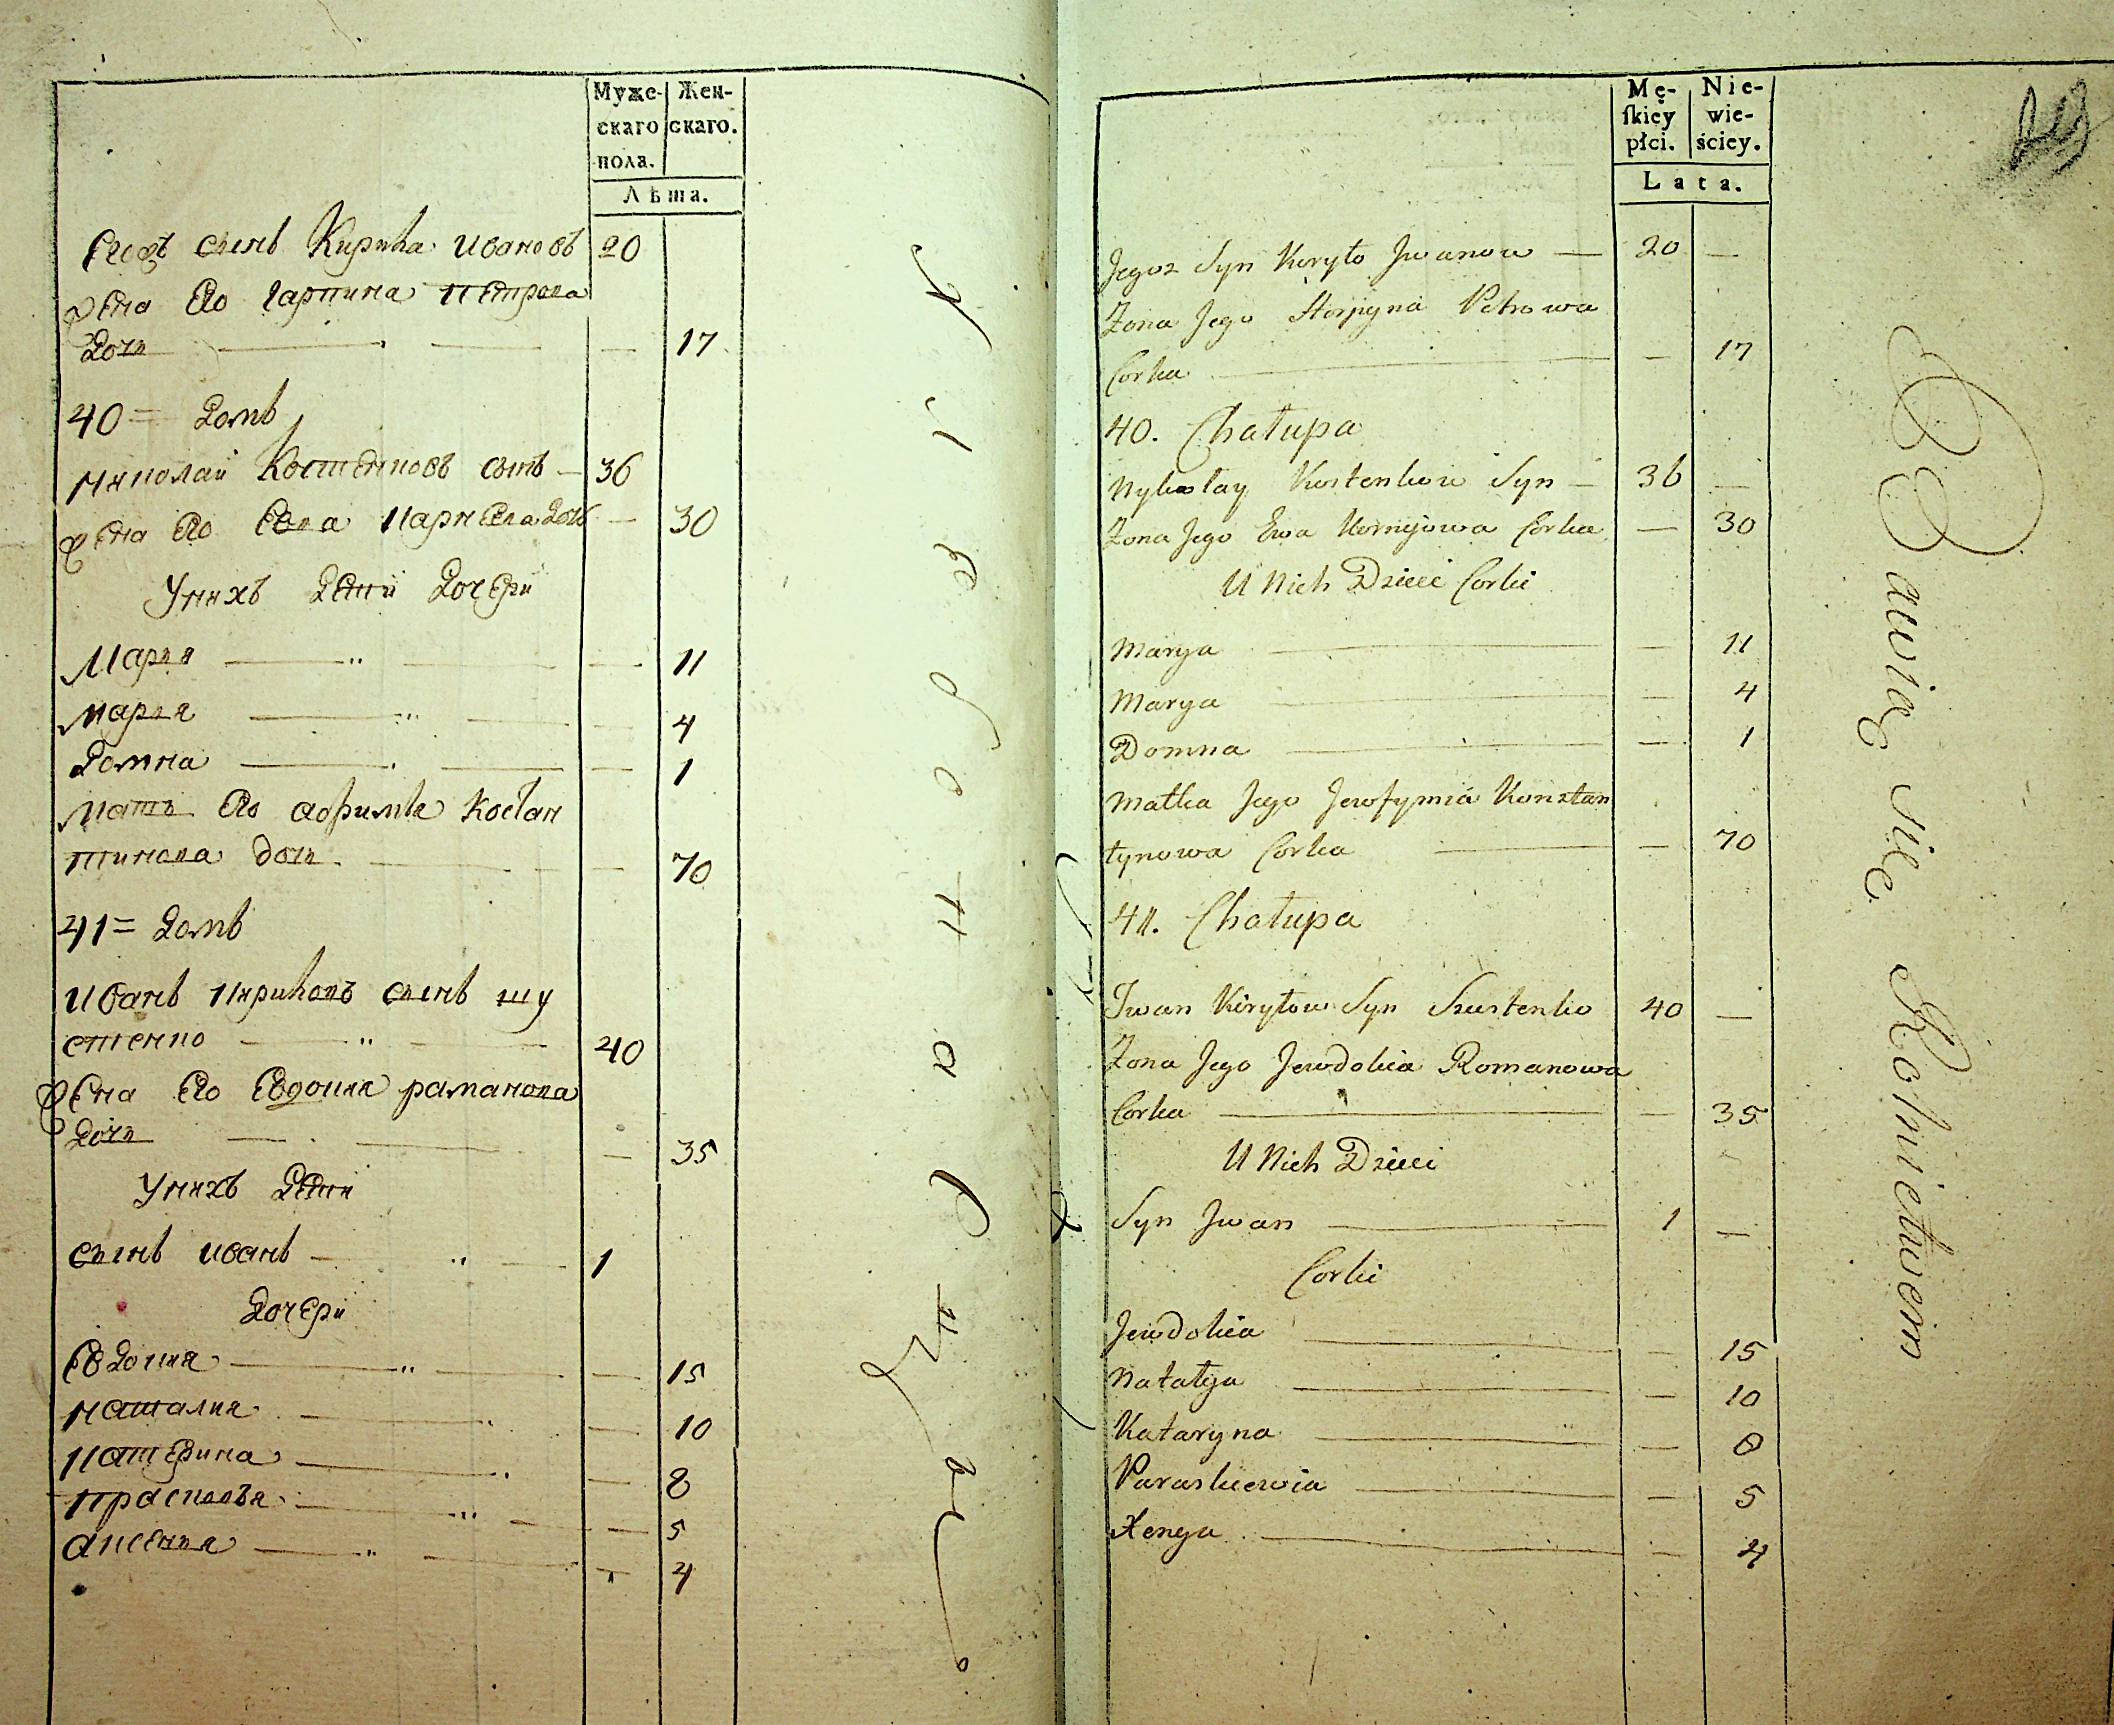 Муже-
скаго
пола.
Жен-
скаго.
Лѣта.
сынъ Кирила Ивановъ 20
жена его Гарпина Петрова
дочь — — — 17
40 = Домъ
Николай Костенковъ сынъ — 36
жена его Евва Карнеева дочь — 30
У нихъ дети дочери
Мария — — — 11
Мария — — — 4
Домна — — — 1
мать его Костан
тинова дочь — — 70
41 = Домъ
Иванъ Кириловъ сынъ Шу
стенко — — 40
жена его Евдокия Раманова
дочь — — — 35
У нихъ дети
сынъ Иванъ — — 1
дочери
Евдокия — — — 15
Наталия — — — 10
Катерина — — — 8
Прасковья — — — 5
Аксения — — — 4
Mę-
ſkiey
płci.
Nie-
wie-
ściey.
Lata.
Jegoz Syn Kiryło Jwanow — 20 —
Zona Jego Horpyna Petrowa
Corka — — 17
40. Chałupa
Nykołay Kostenkow Syn — 36 —
Zona Jego Ewa Kornijowa Corka — 30
U Nich Dzieci Corki
Marya — — 11
Marya — — 4
Domna — — 1
Matka Jego Jewfymia Konstan
tynowa Corka — — 70
41. Chałupa
Jwan Kiryłow Syn Szustenko 40 —
Zona Jego Jewdokia Romanowa
Corka — — 35
U Nich Dzieci
Syn Jwan — 1 —
Corki
Jewdokia — — 15
Natalya — — 10
Kataryna — — 8
Paraskiewia — — 5
Xenya — — 4
Bawią się Rolnictwem